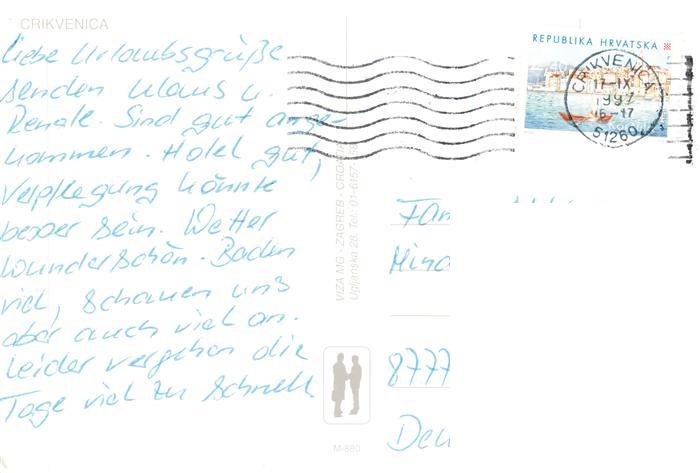 CRIKVENICA
Liebe Urlaubsgrüße
senden Klaus u.
Renate. Sind gut ange-
kommen. Hotel gut,
Verpflegung könnte
besser sein. Wetter
wunderschön. Baden
viel, schauen uns
aber auch viel an.
Leider vergehen die
Tage viel zu schnell
VIZA MG · ZAGREB · CROATIA
M-880
REPUBLIKA HRVATSKA
CRIKVENICA
17-IX.
1997
16-17
51260
Fam
8777